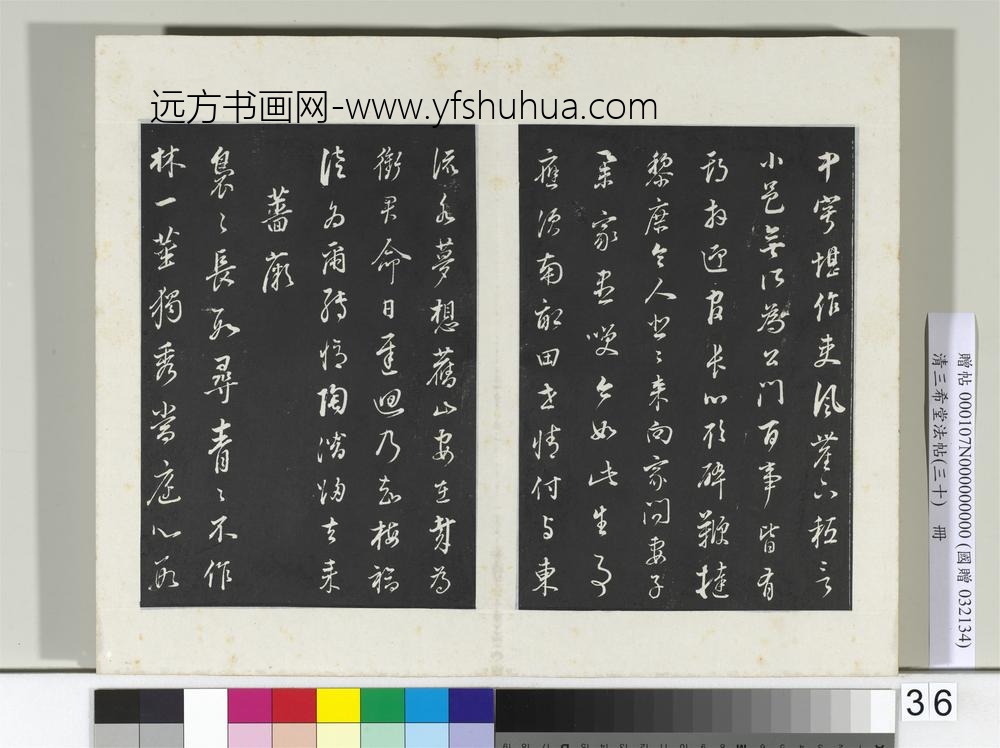 远方书画网-www.yfshuhua.com
中寧堪作吏風塵下秪言
小邑無所為公門百事皆有
期拜迎官長心欲碎鞭撻
黎庶令人悲〻來向家問妻子
舉家盡咲今如此生事
應須南畝田世情付與東
流水夢想舊山安在哉為
銜君命日遲迴乃知梅福
徒為爾轉憶陶潛歸去來
薔薇
裊〻長數尋青〻不作
林一莖獨秀當庭心數
贈帖 000107N000000000 (國贈 032134)
清三希堂法帖(三十) 冊
36